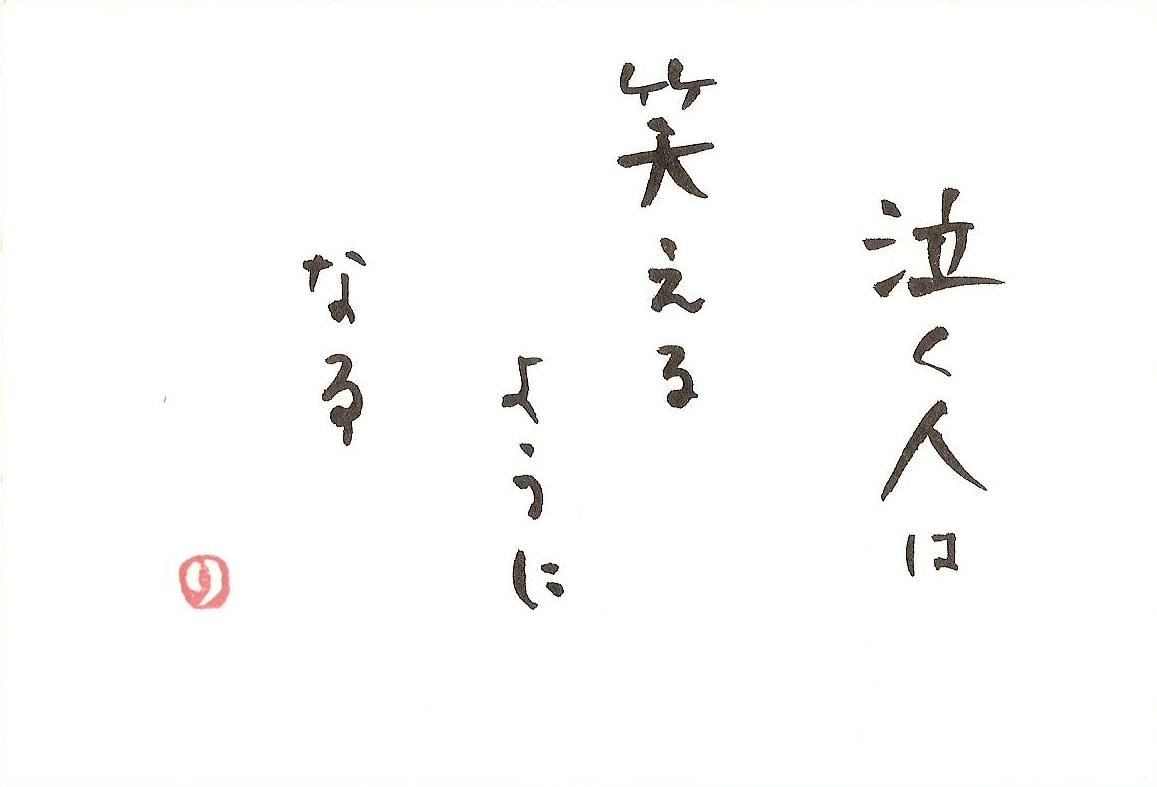 泣く人は
笑える
ように
なる